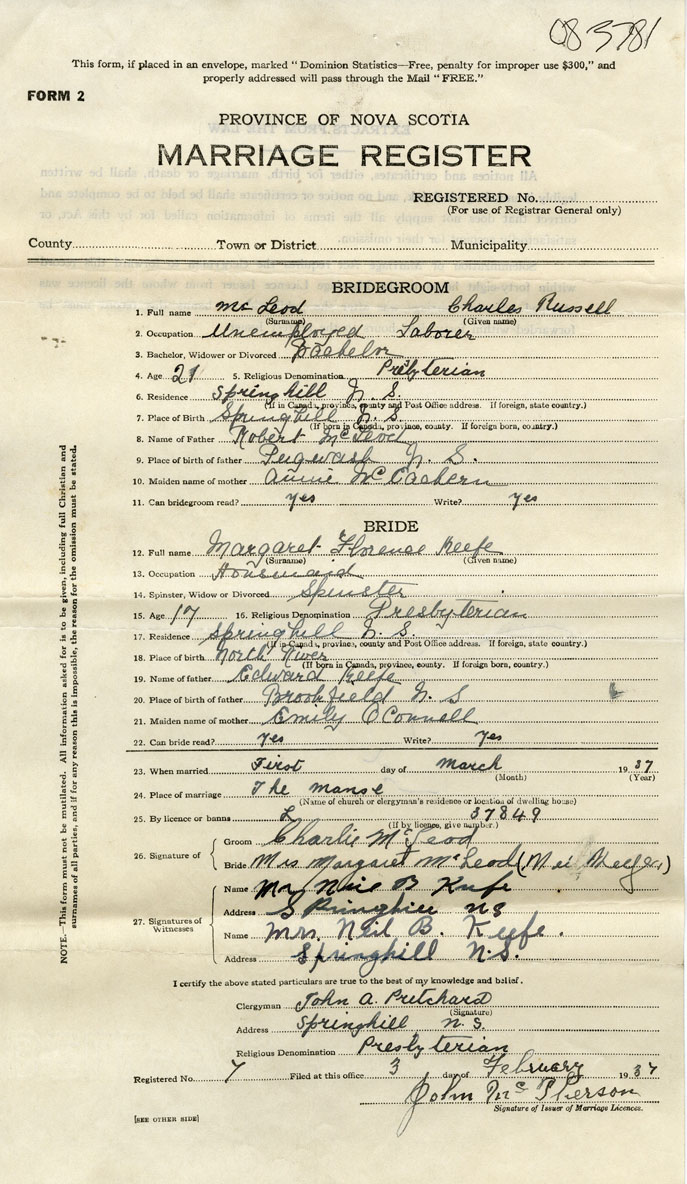 083781
This form, if placed in an envelope, marked "Dominion Statistics—Free, penalty for improper use $300," and
properly addressed will pass through the Mail "FREE."
FORM 2
PROVINCE OF NOVA SCOTIA
MARRIAGE REGISTER
REGISTERED No.
(For use of Registrar General only)
County Town or District Municipality
BRIDEGROOM
1. Full name Mc Leod Charles Russell
(Surname) (Given name)
2. Occupation Unemployed Laborer
3. Bachelor, Widower or Divorced Bachelor
4. Age 21 5. Religious Denomination Prebyterian
6. Residence Springhill N. S.
(If in Canada, province, county and Post Office address. If foreign, state country.)
7. Place of Birth Springhill N. S.
(If born in Canada, province, county. If foreign born, country.)
8. Name of Father Robert McLeod
9. Place of birth of father Pugwash N. S.
10. Maiden name of mother Annie McEachern
11. Can bridegroom read? yes Write? yes
BRIDE
12. Full name Margaret Florence Keefe
(Surname) (Given name)
13. Occupation Housmaid
14. Spinster, Widow or Divorced Spinster
15. Age 17 16. Religious Denomination Presbyterian
17. Residence Springhill N. S.
(If in Canada, province, county and Post Office address. If foreign, state country.)
18. Place of birth North River
(If born in Canada, province, county. If foreign born, country.)
19. Name of father Edward Keefe
20. Place of birth of father Brookfield N. S
21. Maiden name of mother Emily O'Connell
22. Can bride read? yes Write? yes
23. When married First day of march 1937
(Month) (Year)
24. Place of marriage The manse
(Name of church or clergyman's residence or location of dwelling house)
25. By licence or banns L 37849
(If by licence, give number.)
26. Signature of Groom Charlie McLeod
Bride Mrs Margaret McLeod
27. Signatures of Witnesses
Name Mr Neil B Keefe
Address Springhill ns
Name Mrs. Neil B. Keefe.
Address Springhill N.S.
I certify the above stated particulars are true to the best of my knowledge and belief.
Clergyman John A. Pritchard
(Signature)
Address Springhill n. s.
Religious Denomination Presbyterian
Registered No. 7 Filed at this office 3 day of February 1937
John McPherson
Signature of Issuer of Marriage Licences.
[SEE OTHER SIDE]
NOTE.—This form must not be mutilated. All information asked for is to be given, including full Christian and
surnames of all parties, and if for any reason this is impossible, the reason for the omission must be stated.